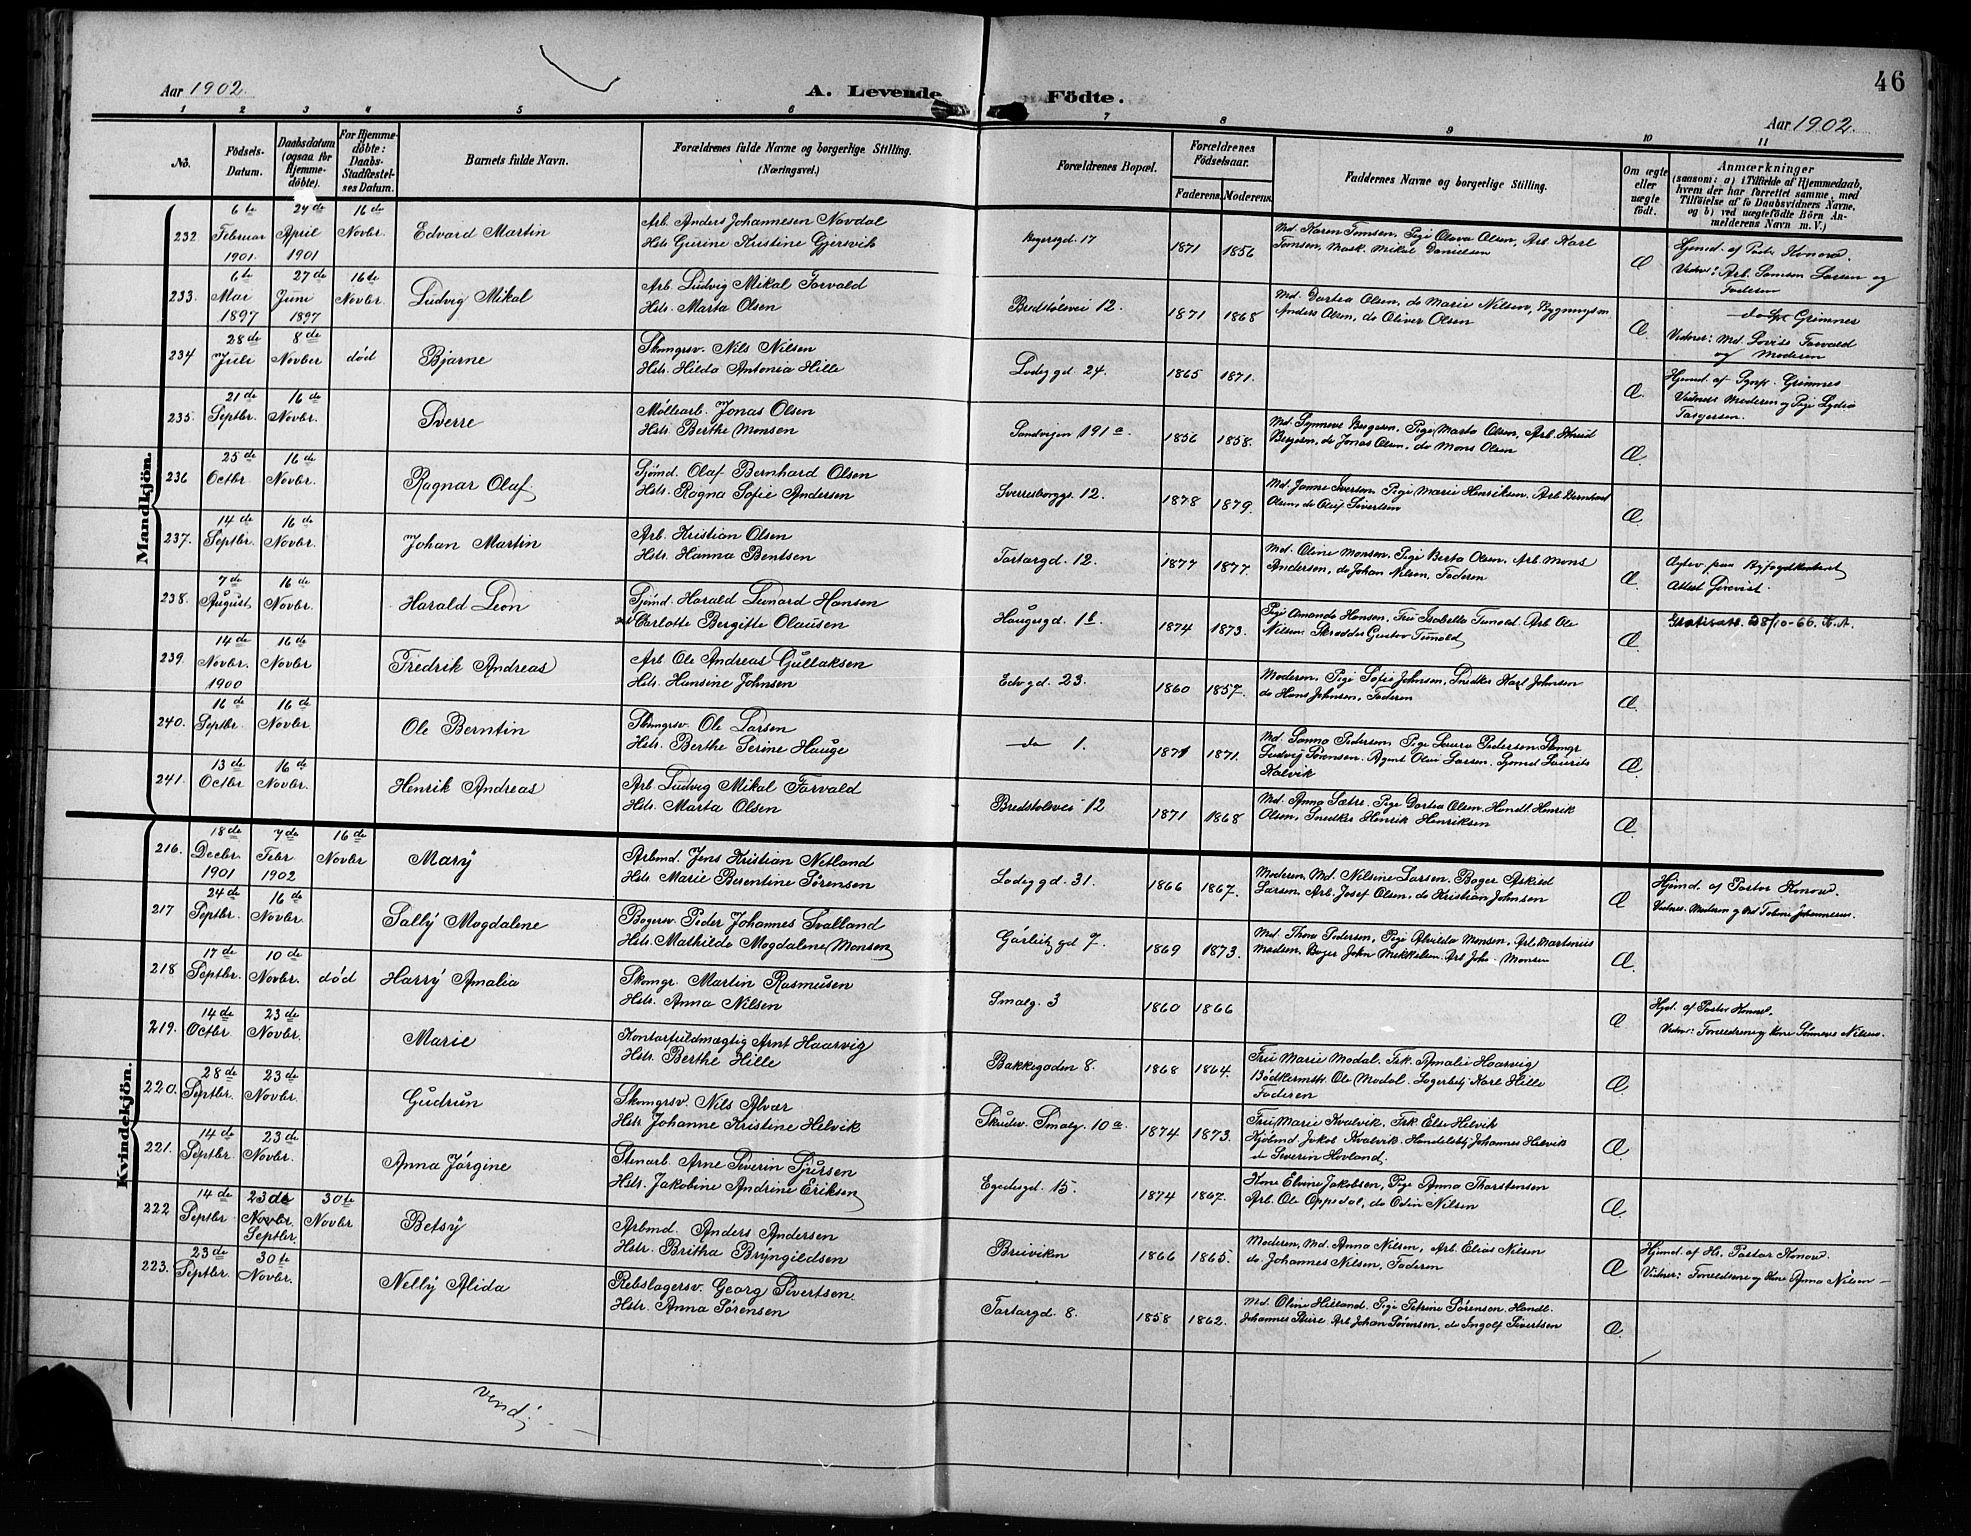 46
Aar 1902.
A. Levende Födte.
Aar 1902.
1 2 3 4 5 6 7 8 9 10 11
No.
Födsels-
Datum.
Daabsdatum
(ogsaa for
Hjemme-
döbte).
For Hjemme-
döbte:
Daabs-
Stadfæstel-
ses Datum.
Barnets fulde Navn.
Forældrenes fulde Navne og borgerlige Stilling.
(Næringsvei.)
Forældrenes Bopæl.
Forældrenes
Födselsaar.
Faderens. Moderens.
Faddernes Navne og borgerlige Stilling.
Om ægte
eller
uægte
født.
Anmærkninger
(saasom: a) i Tilfælde af Hjemmedaab,
hvem der har forrettet samme, med
Tilföielse af to Daabsvidners Navne,
og b) ved uægtefödte Börn An-
melderens Navn m. V.)
Mandkjön.
232 6te Februar 1901. 24de April 1901 16de Novbr. Edvard Martin
Arb. Anders Johannesen Novdal
Hstr. Gurine Kristine Gjersvik
17 1871 1856
Md. Karen Tomsen, Pige Olava Olsen, Arb. Karl
Tomsen, Mask. Mikal Danielsen
Æ
Hjmd. af Pastor Konow.
Vidner: Arb. Samson Larsen og
Faderen
233. 6te Mai 1897 27de Juni 1897 16te Novbr. Ludvig Mikal
Arb. Ludvig Mikal Torvald
Hstr. Marta Olsen
Bredstølvei 12. 1871 1868
Md. Dortea Olsen, do Marie Nilsen, Bygningssn.
Anders Olsen, do Oliver Olsen
Æ.
Grimnes
Vidner: Md. Lovise Torvald
og Moderen
234 28de Juli 8de Novber død Bjarne
Skomgrsv. Nils Nilsen
Hstr. Hilda Antonia Hille
Lodegd 24. 1865 1871.
Æ.
Hjmd. af Grimnes
Vidner: Moderen og Pige Lydia
235. 21de Septbr. 16de Novbr. Sverre
Møllearb. Jonas Olsen
Hstr. Berthe Monsen
Sandvigen 191a 1856 1858.
Md. Synneve Bergesen, Pige Marta Olsen, Arb. Knud
Bergesen, do Jonas Olsen, do Mons Olsen
Æ.
236 25de Octbr. 16de Novbr. Ragnar Olaf
Sjömd. Olaf Bernhard Olsen
Hstr. Ragna Sofie Andersen
Sverresborgs. 12. 1878 1879.
Md. Janna Iversen, Pige Marie Henriksen, Arb. Bernhard
Olsen, do Oluf Sivertsen
Æ.
237. 14de Septbr. 16de Novbr. Johan Martin
Arb. Kristian Olsen
Hstr. Hanna Bentsen
Tartargd. 12. 1877 1877.
Md. Oline Monsen, Pige Berta Olsen, Arb. Mons
Andersen, do Johan Nilsen, Faderen
Æ
238. 7de August 16de Novbr. Harald Leon
Sjömd. Harald Leonard Hansen
Carlotte Bergitte Olausen
Haugesgd. 1874 1873.
Pige Amanda Hansen, Fru Isabella Tunold, Arb. Ole
Nilsen, Skrædder Gustav Tunold
Æ.
28/10-66. K.A.
239. 14de Novbr. 1900 16de Novbr Fredrik Andreas
Arb. Ole Andreas Gullaksen
Hstr. Hansine Johnsen
23. 1860 1857.
Moderen, Pige Sofie Johnsen, Snedker Karl Johnsen
do Hans Johnsen, Faderen
Æ.
240. 16de Septbr. 16de Novbr. Ole Berntin
Skomgrsv. Ole Larsen
Hstr. Berthe Serine Hauge
do 1. 1871 1871.
Md. Sanna Pedersen, Pige Laura Pedersen, Skmgr
Ludvig Sørensen, Agent Olai Larsen, Sjømd Laurits
Kalvik
Æ.
241. 13de Octbr 16de Novbr. Henrik Andreas
Arb. Ludvig Mikal Torvald
Hstr. Marta Olsen
Bredstølsvei 12 1871 1868
Md. Anna Sætre, Pige Dortea Olsen, Handl. Henrik
Olsen, Snedker Henrik Henriksen
Æ.
Kvindekjön.
216. 18de Decbr. 1901 7de Febr. 1902 16de Novbr Mary
Arbmd. Jens Kristian Netland
Hstr. Marie Berentine Sørensen
Lodegd. 31. 1866 1867.
Moderen, Md. Nilsine Larsen, Bager Askild
Larsen, Arb. Josef Olsen, do Kristian Johnsen
Æ
Hjmd. af Pastor Konow.
Vidner: Moderen og Md Tomine Johannessen.
217 24de Septbr. 16de Novbr. Sally Magdalene
Bagersv. Peder Johannes Svalland
Hstr. Mathilde Magdalene Monsen
7. 1869 1873.
Md. Thora Pedersen, Pige Alvilda Monsen, Arb. Martinius
Madsen, Bager John Mikkelsen, Arb. Johs. Monsen
Æ.
218 17de Septbr. 10de Novbr. død Harry Amalia
Skomgr. Martin Rasmusen
Hstr. Anna Nilsen
Smalg. 3 1860 1866
Æ
Hjd. af Pastor Konow.
Vidner: Forældrene og Kone Nilsen.
219. 14de Octbr 23de Novbr. Marie
Kontorfuldmægtig Arnt Haarvig
Hstr. Berthe Hille
Bakkegaden 8. 1868 1864.
Fru Marie Modal. Frk. Amalie Haarvig
Bödkermstr. Ole Modal. Lagerbetj Karl Hille
Faderen
Æ.
220. 28de Septbr. 23de Novbr. Gudrun
Skomgrsv. Nils Alvær
Hstr. Johanne Kristine Helvik
Skutev. Smalg. 10a 1874 1873.
Fru Marie Kvalvik, Frk. Elise Helvik
Kjöbmd Jakob Kvalvik, Handelsbetj Johannes Helvik
do Severin Hovland.
Æ.
221. 14de Septbr. 23de Novbr. Anna Jörgine
Stenarb. Arne Severin Sjursen
Hstr. Jakobine Andrine Eriksen
Egedesgd. 15. 1874 1867.
Kone Elvine Jakobsen, Pige Anna Thorstensen
Arb. Ole Oppedal, do Odin Nilsen
Æ.
222 14de Septbr. 23de Novbr. Septbr. 30te Novbr Betsy
Arbmd. Anders Andersen
Hstr. Britha Bryngildsen
Breiviken 1866 1865.
Moderen, Md. Anna Nilsen, Arb. Elias Nilsen
do Johannes Nilsen, Faderen
Æ
Hjmd. af Hr. Pastor Konow.
Vidner: Forældrene og Kone Anna Nilsen
223. 23de Septbr. 30te Novbr. Nelly Alida
Rebslagersv. Georg Sivertsen
Hstr. Anna Sørensen
Tartargd. 8. 1858 1862.
Md. Oline Hilland, Pige Petrine Sørensen, Handl.
Johannes Sture, Arb Johan Sørensen, do Ingolf Sivertsen
Æ.
vend!